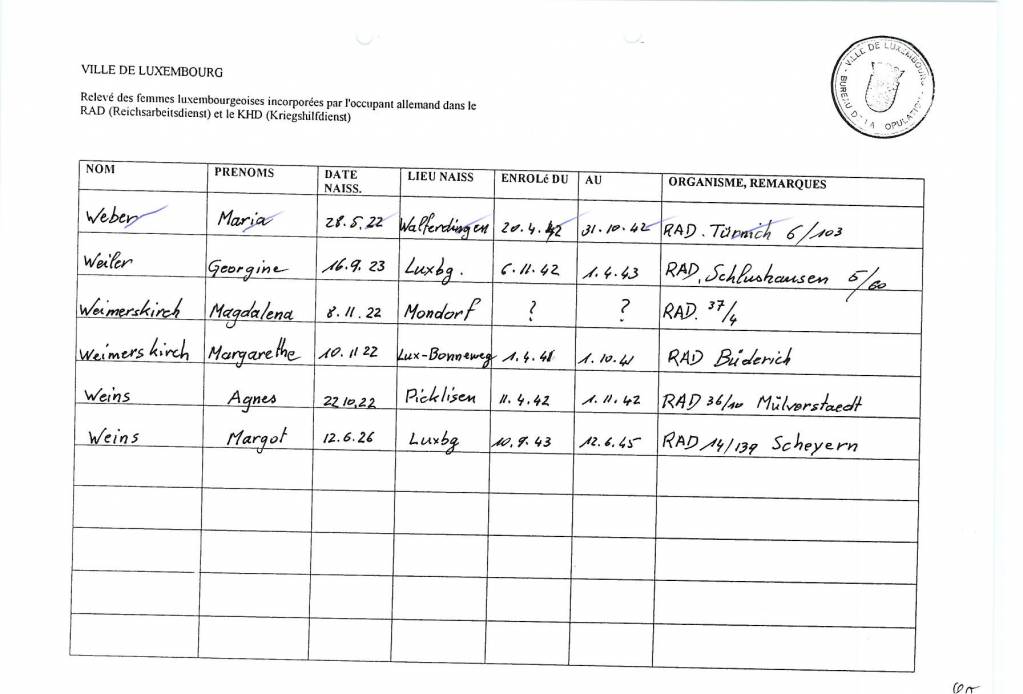 VILLE DE LUXEMBOURG
VILLE DE LUXEMBOURG - BUREAU DE LA POPULATION
Relevé des femmes luxembourgeoises incorporées par l'occupant allemand dans le
RAD (Reichsarbeitsdienst) et le KHD (Kriegshilfdienst)
NOM PRENOMS DATE NAISS. LIEU NAISS ENROLé DU AU ORGANISME, REMARQUES
Weber Maria 28.5.22 Walferdingen 20.4.42 31.10.42 RAD. Türnich 6/103
Weiler Georgine 16.9.23 Luxbg. 6.11.42 1.4.43 RAD, Schlushausen 5/60
Weimerskirch Magdalena 8.11.22 Mondorf ? ? RAD. 37/4
Weimerskirch Margarethe 10.11 22 Lux-Bonneweg 1.4.41 1.10.41 RAD Büderich
Weins Agnes 22 10.22 Picklisen 11.4.42 1.11.42 RAD 36/10 Mülverstaedt
Weins Margot 12.6.26 Luxbg 10.9.43 12.6.45 RAD 14/139 Scheyern